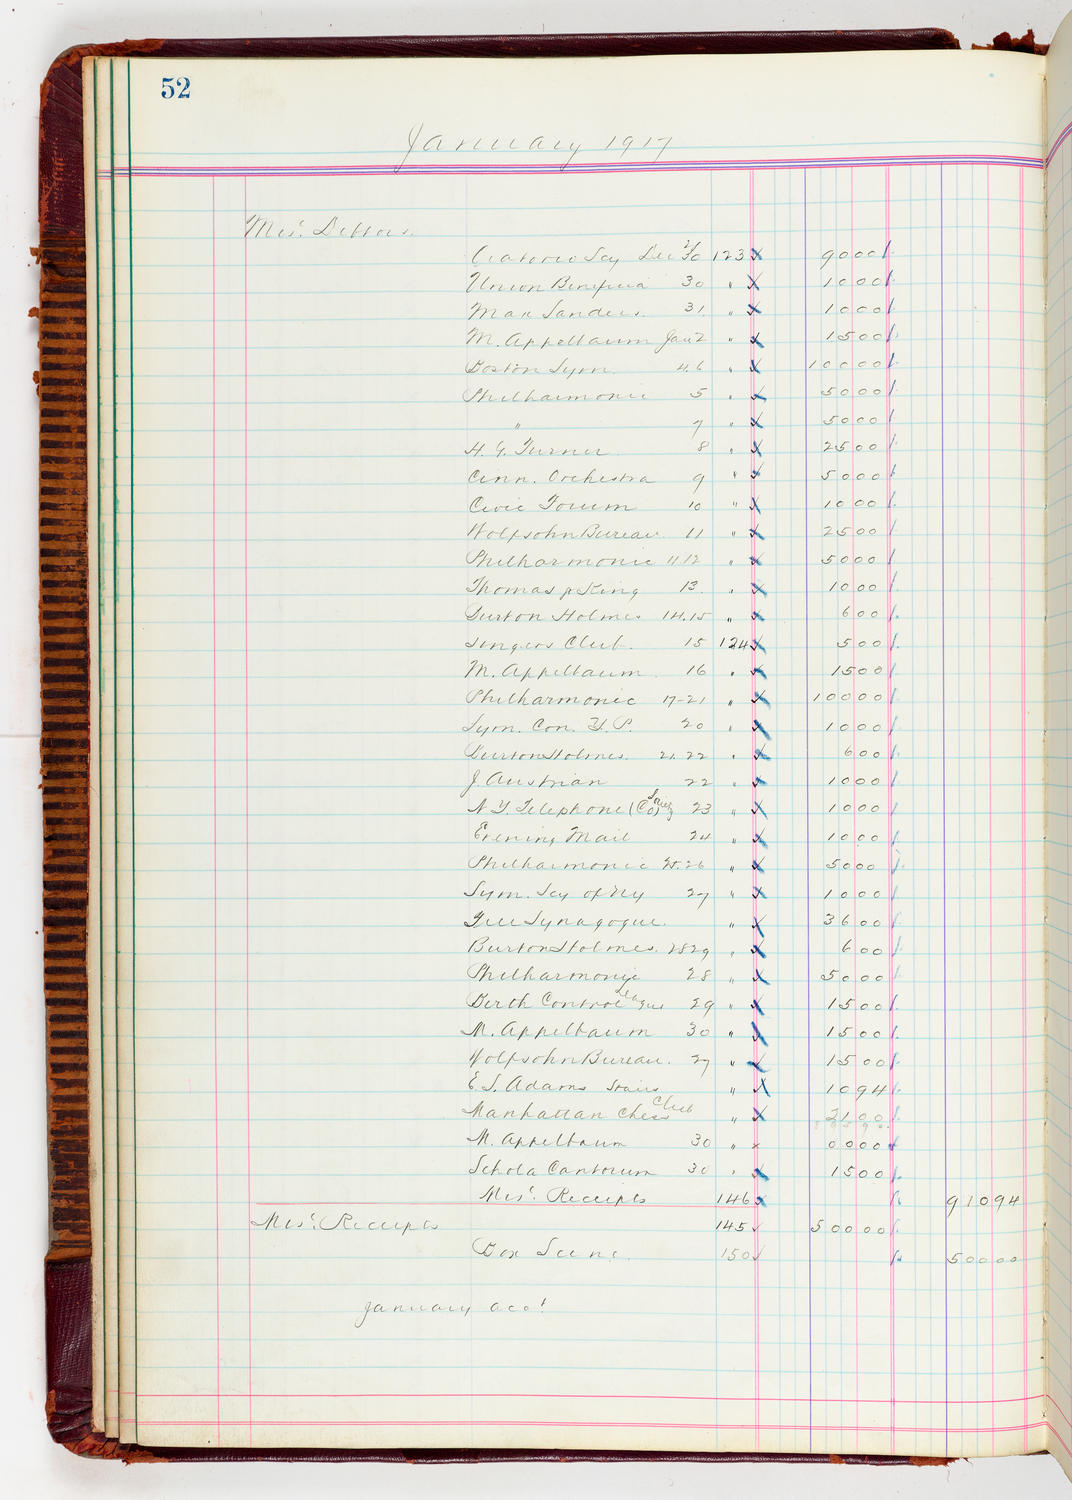 52
January 1917
Misc. Debtors.
Oratorio Socy Dec 30 123 9000
Union Benefica 30 " 1000
Max Sanders. 31. " 1000
M. Appelbaum Jan 2 " 1500
Boston Sym. 4.6 " 10000
Philharmonic 5 " 5000
" 7 " 5000
H. G. Turner 8 " 2500
Cinn. Orchestra 9 " 5000
Civic Forum 10 " 1000
Wolfsohn Bureau. 11 " 2500
Philharmonic 11 12 " 5000
Thomas King 13. " 1000
Burton Holmes 14.15 " 600
Singers Club. 15 124 500
M. Appelbaum. 16 " 1500
Philharmonic 17-21 " 10000
Sym. Con. Y. P. 20 " 1000
Burton Holmes. 21.22 " 600
J. Austrian 22 " 1000
N Y. Telephone (Co) 23 " 1000
Evening Mail 24 " 1000
Philharmonic 25.26 " 5000
Sym. Socy of Ny 27 " 1000
Free Synagogue. " 3600
Burton Holmes. 28 29 " 600
Philharmonic 28 " 5000
Birth Control League 29 " 1500
M. Appelbaum 30 " 1500
Wolfsohn Bureau. 27 " 1500
E. S. Adams Stairs " 1094
Manhattan Chess Club " 2100
M. Appelbaum 30 " 0000
Schola Cantorum 30 " 1500
Misc. Receipts 146 91094
Misc. Receipts 145 50000
Box Scene. 150 50000
January acct